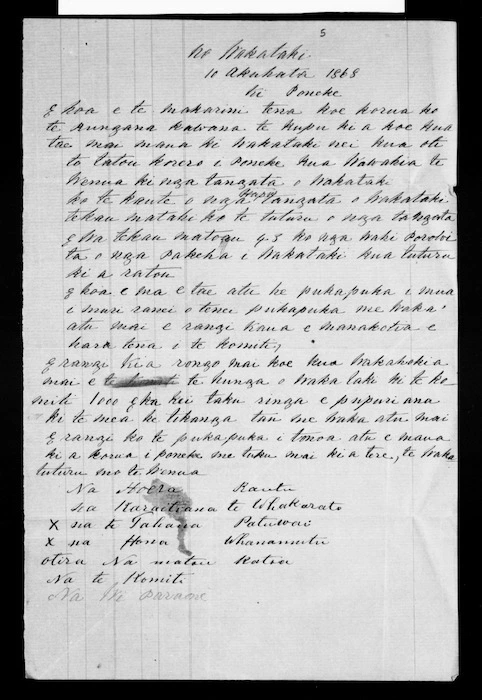 5
No Wakataki
10 Akuhata 1868
Ki Poneke
E hoa e te makarini tena koe korua ko
te rungana kawana te kupu ki a koe kua
tae mai maua ki Wakataki nei kua oti
to tatou korero i Poneke kua Wawakia te
Wenua ki nga tangata o Wakataki
ko te kaute o nga Hapu tangata o Wakataki
tekau matahi ko te tuturu o nga tangata
E Wa tekau matou 45 ko nga wahi Poroti
ta o nga Pakeha i Wakataki kua tuturu
ki a ratou
E hoa e ma e tae atu he pukapuka i mua
i muri ranei o tenei pukapuka me waka
atu mai e rangi kaua e manakotia e
hara tena i te komiti,
E rangi kia rongo mai koe kua Wakahokia
mai e te komiti te hunga o Wakataki ki te ko-
miti 1000 eka kei taku ringa e pupuri ana
ki te mea he tikanga tau me waka atu mai
E rangi ko te pukapuka i tonoa atu e maua
ki a korua i poneke me tuku mai ki a tere, te waka
tuturu mo te Wenua
Na Hoera Rautu
na Karaitiana te Whakarato
X na te Tahana Patuwai
X na Hona Whanamutu
otira Na matou katoa
Na te Komiti
Na Wi Paraone